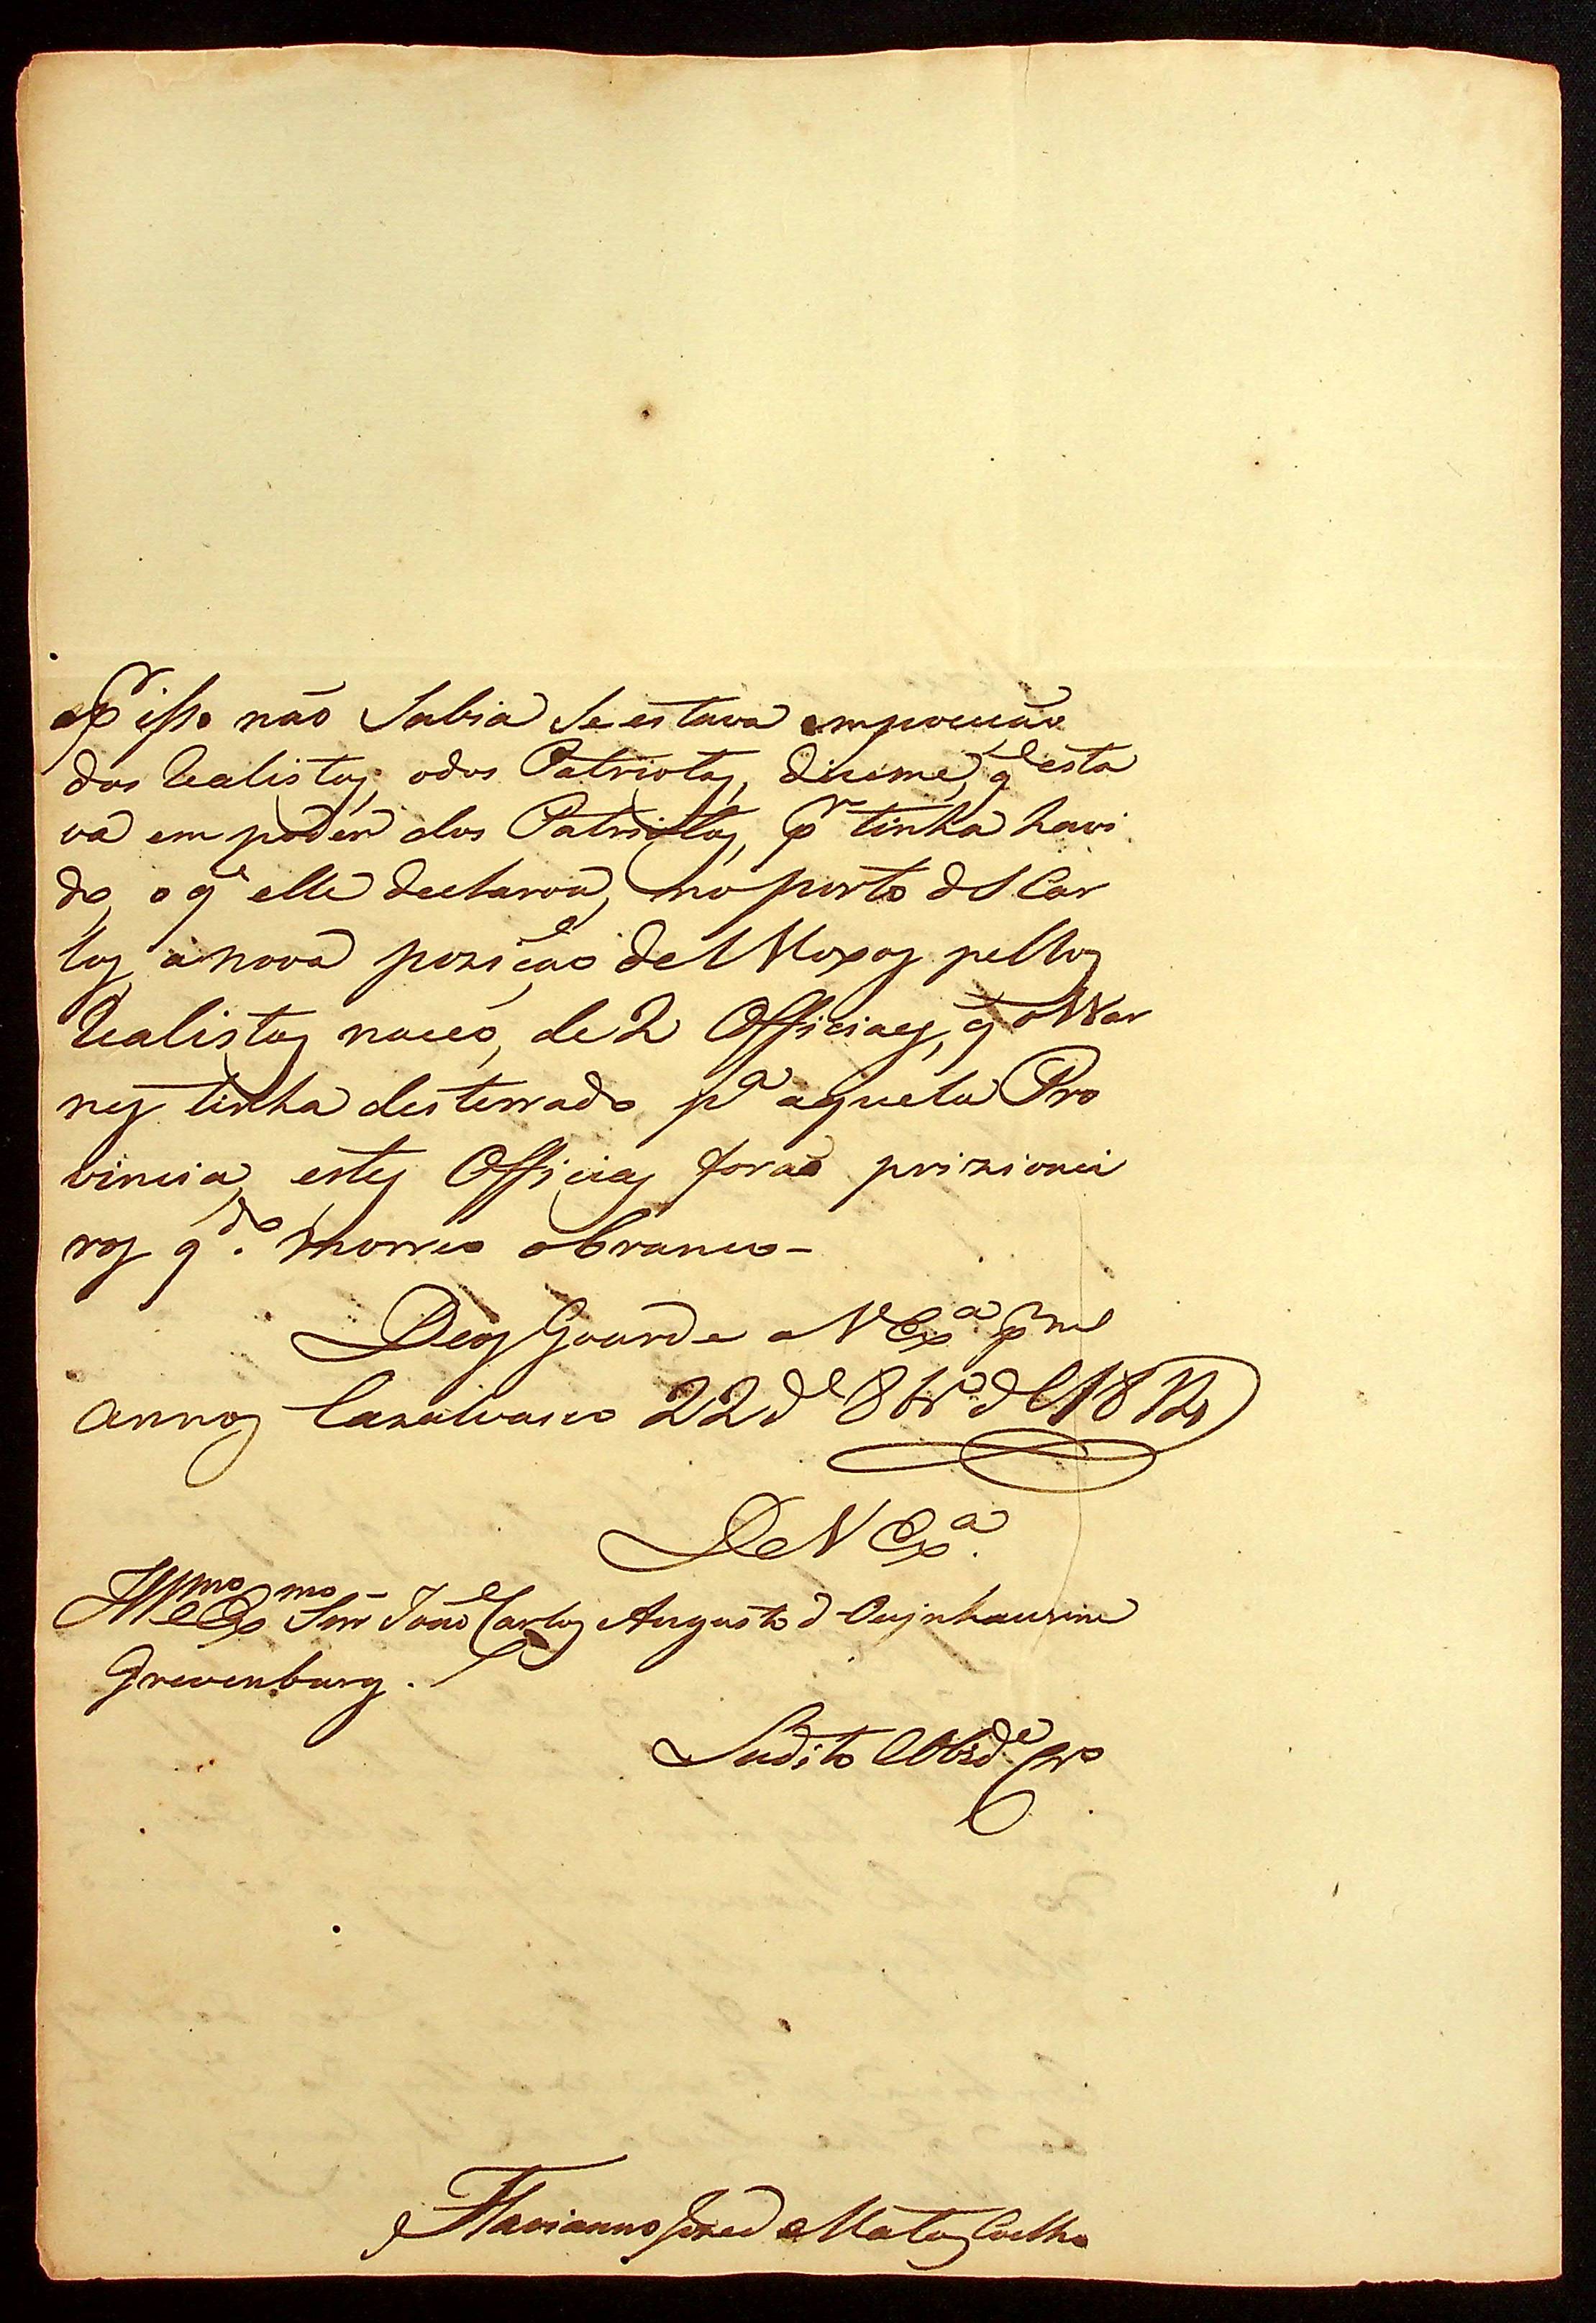 e Pr isso não Sabia Se estava em
dos Realistas, o dos Patriotas, diceme, qe esta
va em poder dos Patriotas, pr tinha havi
do, o qe elle declarou, no porto de S Car
los, a nova pozição de Moxos pellos
Realistas naceo, de 2 Officiaes, qe o
tinha desterrado pa aquela Pro
vincia, estes Officiaes forão prizionei
ros qdo. morreo o branco-
Deos Guarde a V Exa. pr ml
annos Cazalvasco 22 de 8bro de 18
De V Exa.
Illmo e Exmo Snr João Carlos Augusto d'Oeynhausen
Grevenburg.
Sudito Obide Cro
Flavianno Joze de Matos Coelho